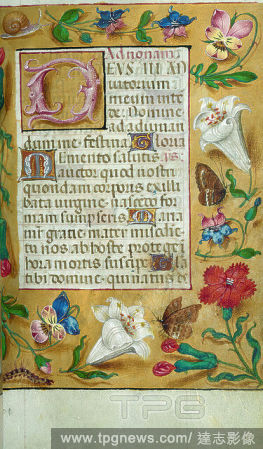 Ad nonam
DEUS IN AD
iutorium
meum inte
de: Domine
ad adiuuan
dum me festina. Gloria
Memento salutis ps.
auctor quod nostri
quondam corporis ex illi
bata uirgine nascedo for
mam sumpseris. Maria
mr gratie mater misericordie
tu nos ab hoste protege i
hora mortis suscipe. Gla
tibi domine, qui natus es
TPG
www.tpgnews.com／達志影像